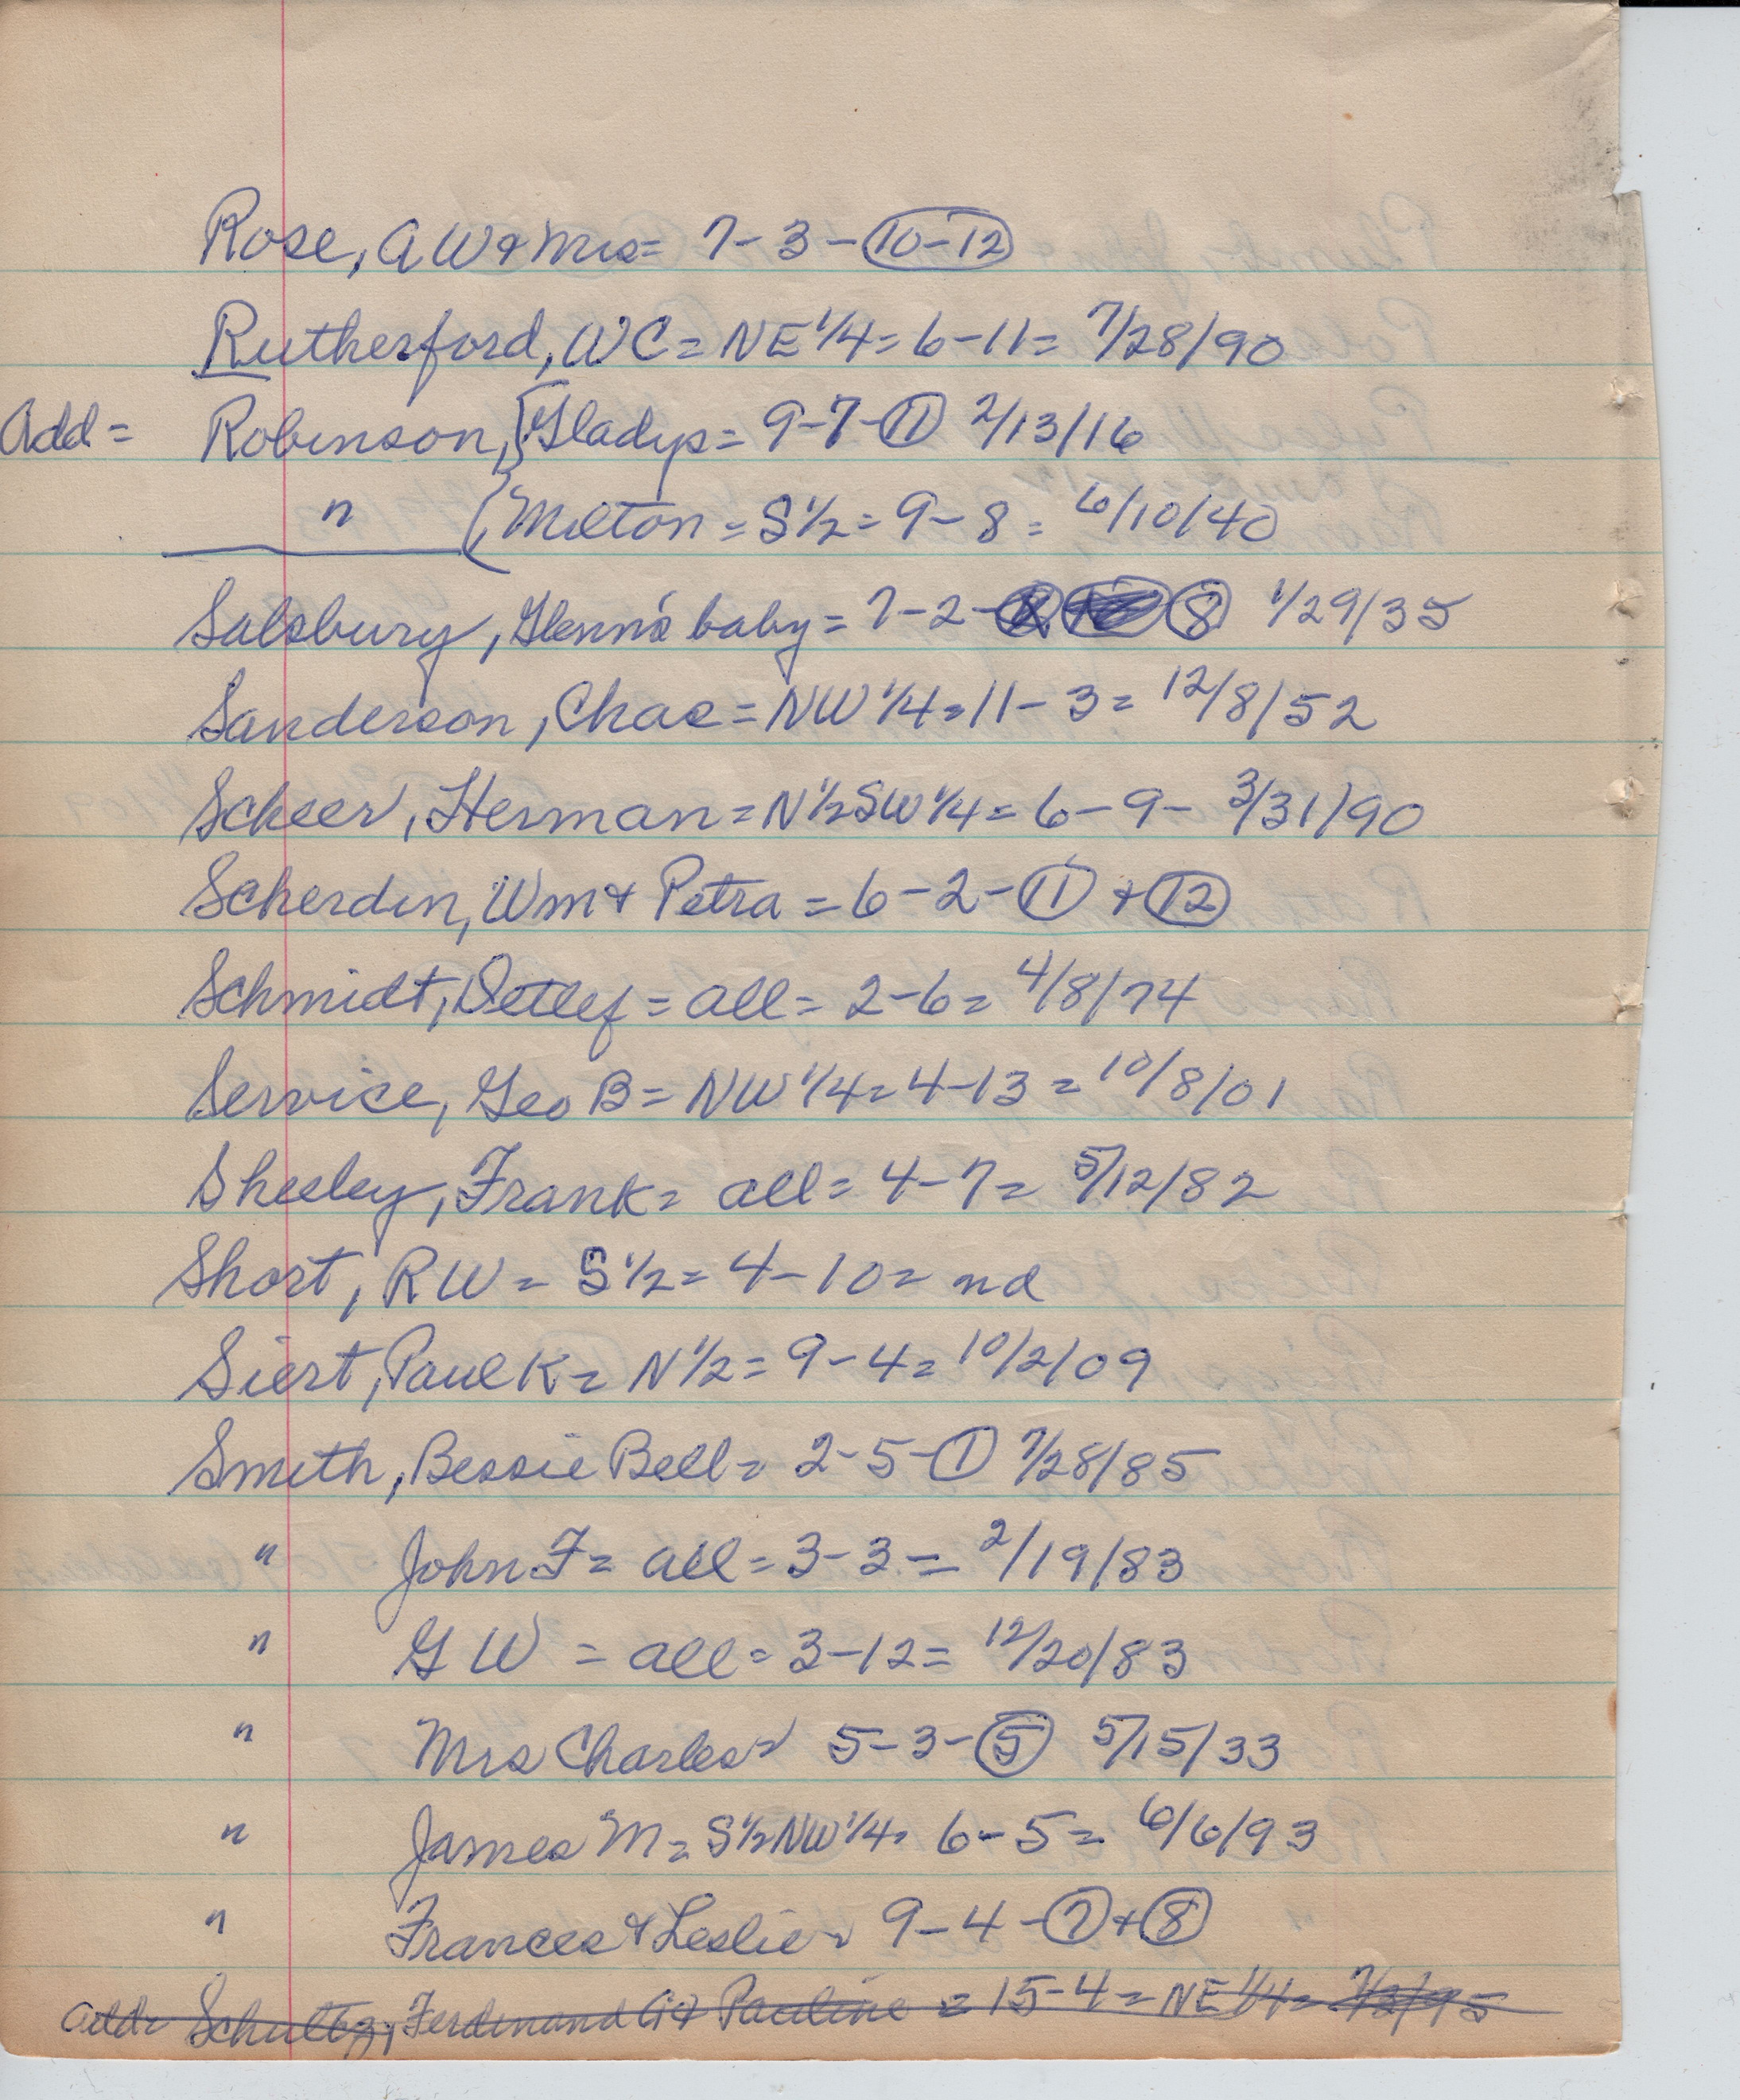 Rose, A W & Mrs = 7-3-10-12
Rutherford, WC = NE 1/4 = 6-11 = 7/28/90
Add = Robinson, Gladys = 9-7-11 2/13/16
" Milton = S 1/2 = 9-8 = 6/10/40
Salsbury, Glenn's baby = 7-2- 8 1/29/35
Sanderson, Chas = NW 1/4 = 11-3 = 12/8/52
Scheer, Herman = N 1/2 SW 1/4 = 6-9- 3/31/90
Scherdin, Wm & Petra = 6-2-11 + 12
Schmidt, Detlef = all = 2-6 = 4/8/74
Service, Geo B = NW 1/4 = 4-13 = 10/8/01
Sheeley, Frank = all = 4-7 = 5/12/82
Short, RW = S 1/2 = 4-10 = nd
Siert, Paul K = N 1/2 = 9-4 = 10/2/09
Smith, Bessie Bell = 2-5-1 7/28/85
" John F = all = 3-3 = 2/19/83
" G W = all = 3-12 = 12/20/83
" Mrs Charles = 5-3-5 5/15/33
" James M = S 1/2 NW 1/4 = 6-5 = 6/6/93
" Frances & Leslie = 9-4-7 + 8
Add = Schultz, Ferdinand A & Pauline = 15-4 = NE 1/4 = 7/2/95